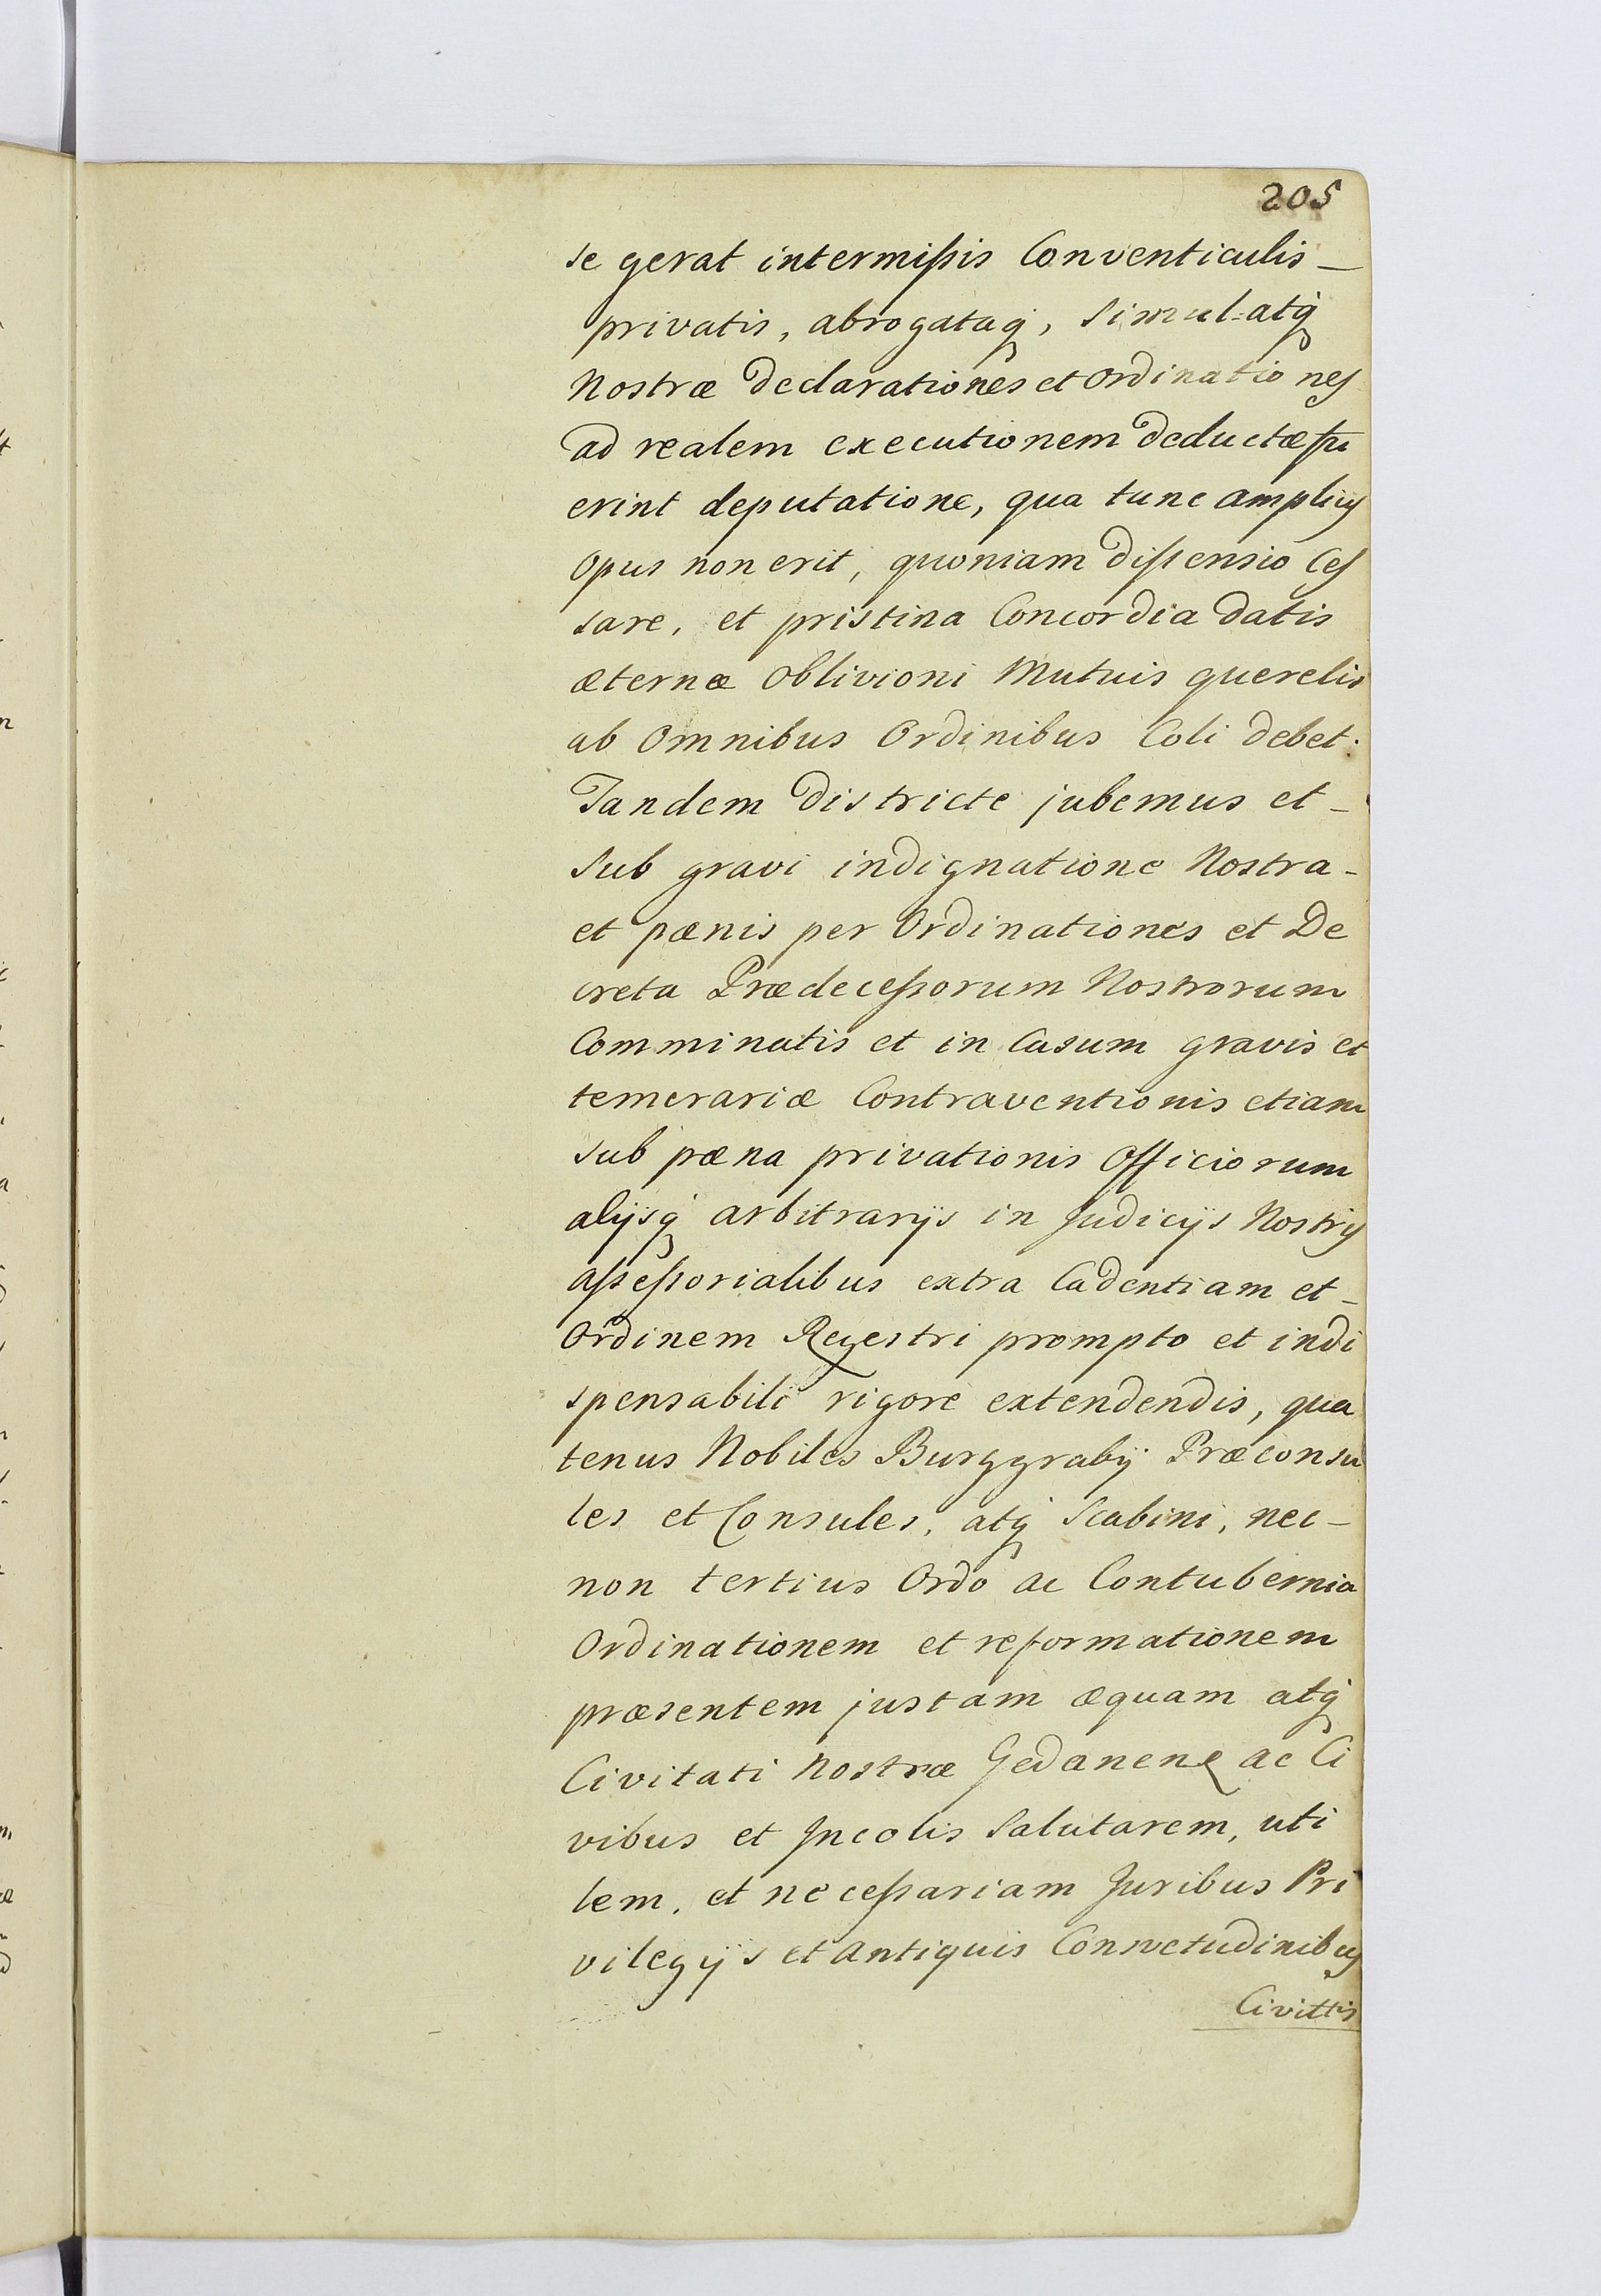 205
se gerat intermiſsis Conventiculis_
privatis, abrogataq̨, Simul=atq̨
Nostræ declarationes et Ordinationes
ad realem executionem deductæ fu
erint deputatione, qua tunc amplius
opus non erit, quoniam diſsensio Ceſ
sare, et pristina Concordia datis
æternæ Oblivioni Mutuis querelis
ab Omnibus Ordinibus Coli debet.
Tandem districte jubemus et_
Sub gravi indignatione Nostra_
et pœnis per Ordinationes et De
creta Prædeceſsorum Nostrorum
Comminatis et in Casum gravis et
temerariæ Contraventionis etiam
sub pœna privationis Officiorum
alijsq̨ arbitrarijs in Judicijs Nostris
aſseſsorialibus extra Cadentiam et_
Ordinem Regestri prompto et indi
spensabili rigore extendendis, qua
tenus Nobiles Burggrabij Præconsu
les et Consules, atq̨ Scabini, nec_
non tertius Ordo ac Contubernia
Ordinationem et reformationem
præsentem justam æquam atq̨
Civitati Nostræ Gedanenꝭ ac Ci
vibus et Jncolis Salutarem, uti
lem, et neceſsariam Juribus Pri
vilegijs et Antiquis Consvetudinibus
Civittis